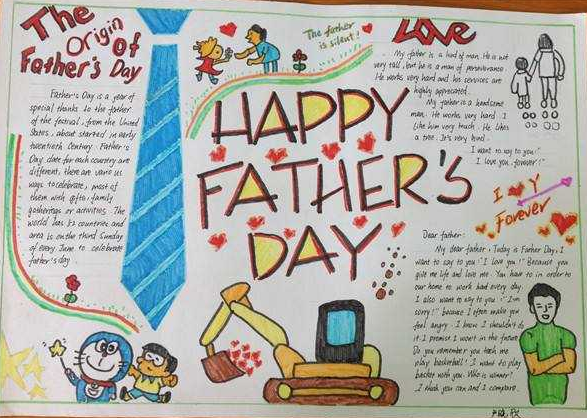 The
Origin
Of
Father's Day
Father's Day is a year of
special thanks to the father
of the festival, from the United
States, about started in early
twentieth Century. Father's
Day date for each country are
different, there are various
ways to celebrate, most of
them with gifts, family
gatherings or activities. The
world has 52 countries and
area is on the third Sunday
of every June to celebrate
father's day.
The father
is silent!
HAPPY
FATHER'S
DAY
Love
My father is a kind of man. He is not
very tall, but he is a man of perseverance
He works very hard and his services are
highly appreciated.
My father is a handsome
man. He works very hard. I
like him very much. He likes
a tree. It's very kind.
I want to say to you:"
I love you, forever!"
I Y
Forever
Dear father:
My dear father, Today is Father Day, I
want to say to you: "I love you!" Because you
give me life and love me. You have to in order to
our home to work hard every day.
I also want to say to you: "I'm
sorry!" because I often make you
feel angry. I know I shouldn't do
it I promise I won't in the future
Do you remember you teach me
play basketball? I want to play
basket with you. Who is winner?
I think you can and I compare.